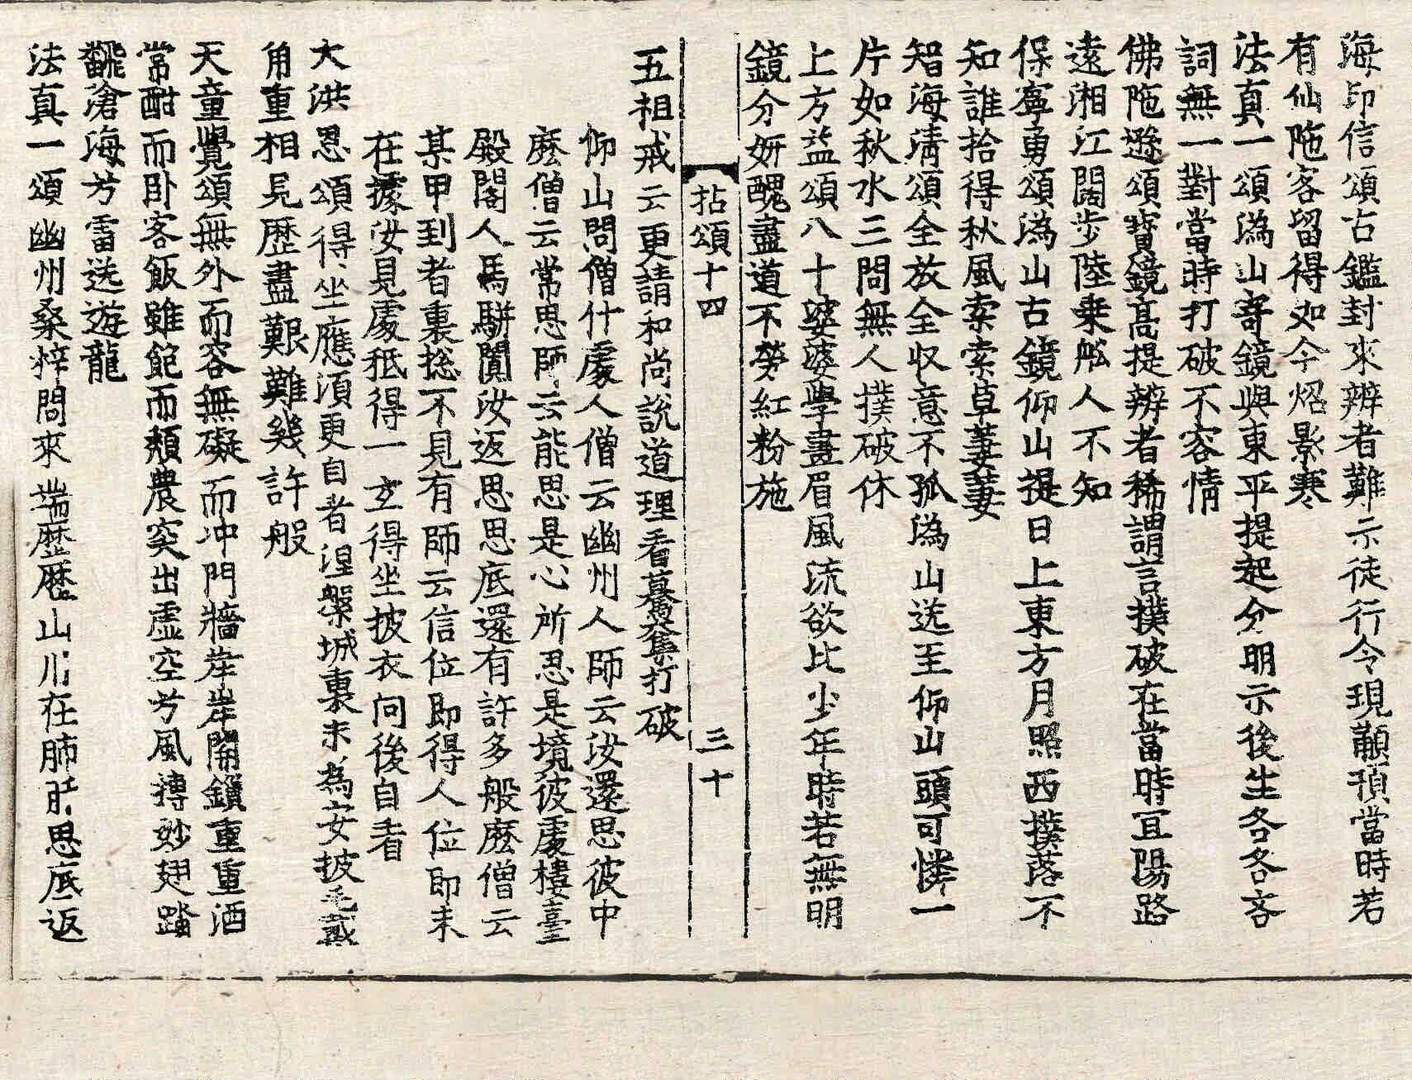 海印信頌古鑑封來辨者難示徒行令現顢頇當時若
有仙陁客留得如今炤影寒
法真一頌溈山寄鏡與東平提起分明示後生各各客
詞無一對當時打破不容情
佛陁遜頌寶鏡高提辨者稀謂言撲破在當時豆陽路
遠湘江闊步陸乗舩人不知
保寧勇頌溈山古鏡仰山提日上東方月照西撲落不
知誰拾得秋風索索草萋萋
智海清頌全放全収意不孤溈山送至仰山頭可憐一
片如秋水三問無人撲破休
上方益頌八十婆婆學畫眉風流欲比少年時若無明
鏡分妍醜盡道不勞紅粉施
拈頌十四 三十
五祖戒云更請和尚說道理看驀奪打破
仰山問僧什處人僧云幽州人師云汝還思彼中
麽僧云常思師云能思是心所思是境彼處樓臺
殿閣人馬駢闐汝返思思底還有許多般麽僧云
某甲到者裏捴不見有師云信位即得人位即未
在據汝見處秪得一玄得坐披衣向後自看
大洪恩頌得坐應須更自看涅槃城裏未為安披毛戴
角重相見歷盡艱難幾許般
天童覺頌無外而容無礙而冲門牆岸岸開鎖重重酒
常酣而卧客飯雖飽而頹農突出虛空兮風摶妙翅踏
飜滄海兮雷送遊龍
法真一頌幽州桑梓問來端歷歷山川在肺肝思底返